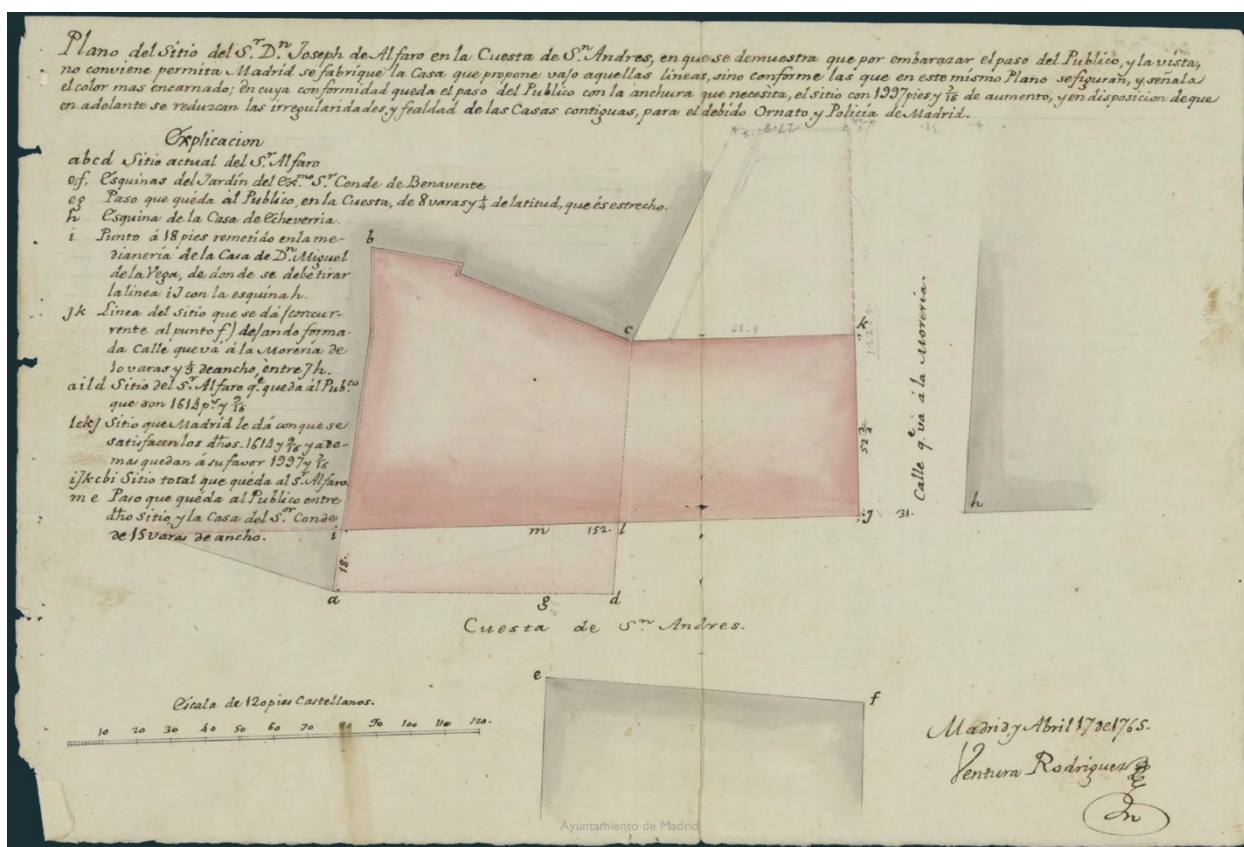 Plano del Sitio del S.r D.n Joseph de Alfaro en la Cuesta de S.n Andres, en que se demuestra que por embarazar el paso del Publico, y la vista,
no conviene permita Madrid se fabrique la Casa que propone vajo aquellas lineas, sino conforme las que en este mismo Plano se figuran, y señala
el color mas encarnado; en cuya conformidad queda el paso del Publico con la anchura que necesita, el sitio con 1997 pies y 7/16 de aumento, y en disposicion de que
en adelante se reduzcan las irregularidades, y fealdad de las Casas contiguas, para el debido Ornato y Policía de Madrid.
Explicacion
abcd Sitio actual del S.r Alfaro
e,f, Esquinas del Jardín del Ex.mo S.r Conde de Benavente
eg Paso que quéda al Publico, en la Cuesta, de 8 varas y 1/4 de latitud, que és estrecho.
h Esquina de la Casa de Echeverria.
i Punto á 18 pies remetido en la me-
dianería de la Casa de D.n Miguel
de la Vega, de donde se debe tirar
la linea iJ con la esquina h.
Jk Linea del sitio que se dá (concur-
rente al punto f) dejando forma-
da Calle que vá á la Morería de
10 varas y 1/3 de ancho, entre Jh.
aild Sitio del S.r Alfaro q.e queda al Pub.co
que son 1614 p.s y 9/16
lckJ Sitio que Madrid le dá con que se
satisfacen los dhos. 1614 y 9/16 y ade-
mas quedan á su favor 1997 y 7/16
iJkcbi Sitio total que quéda al S.r Alfaro.
m e Paso que quéda al Publico entre
dho Sitio, y la Casa del S.or Conde
de 15 varas de ancho.
b
c
65.3
k
52 3/4
Calle q.e va á la Moreria.
h
i
m
152.
l
J
31.
18.
a
g
d
Cuesta de S.n Andres.
e
f
Escala de 120 pies Castellanos.
10 20 30 40 50 60 70 80 90 100 110 120.
Madrid y Abril 17 de 1765.
Ventura Rodriguez
Ayuntamiento de Madrid